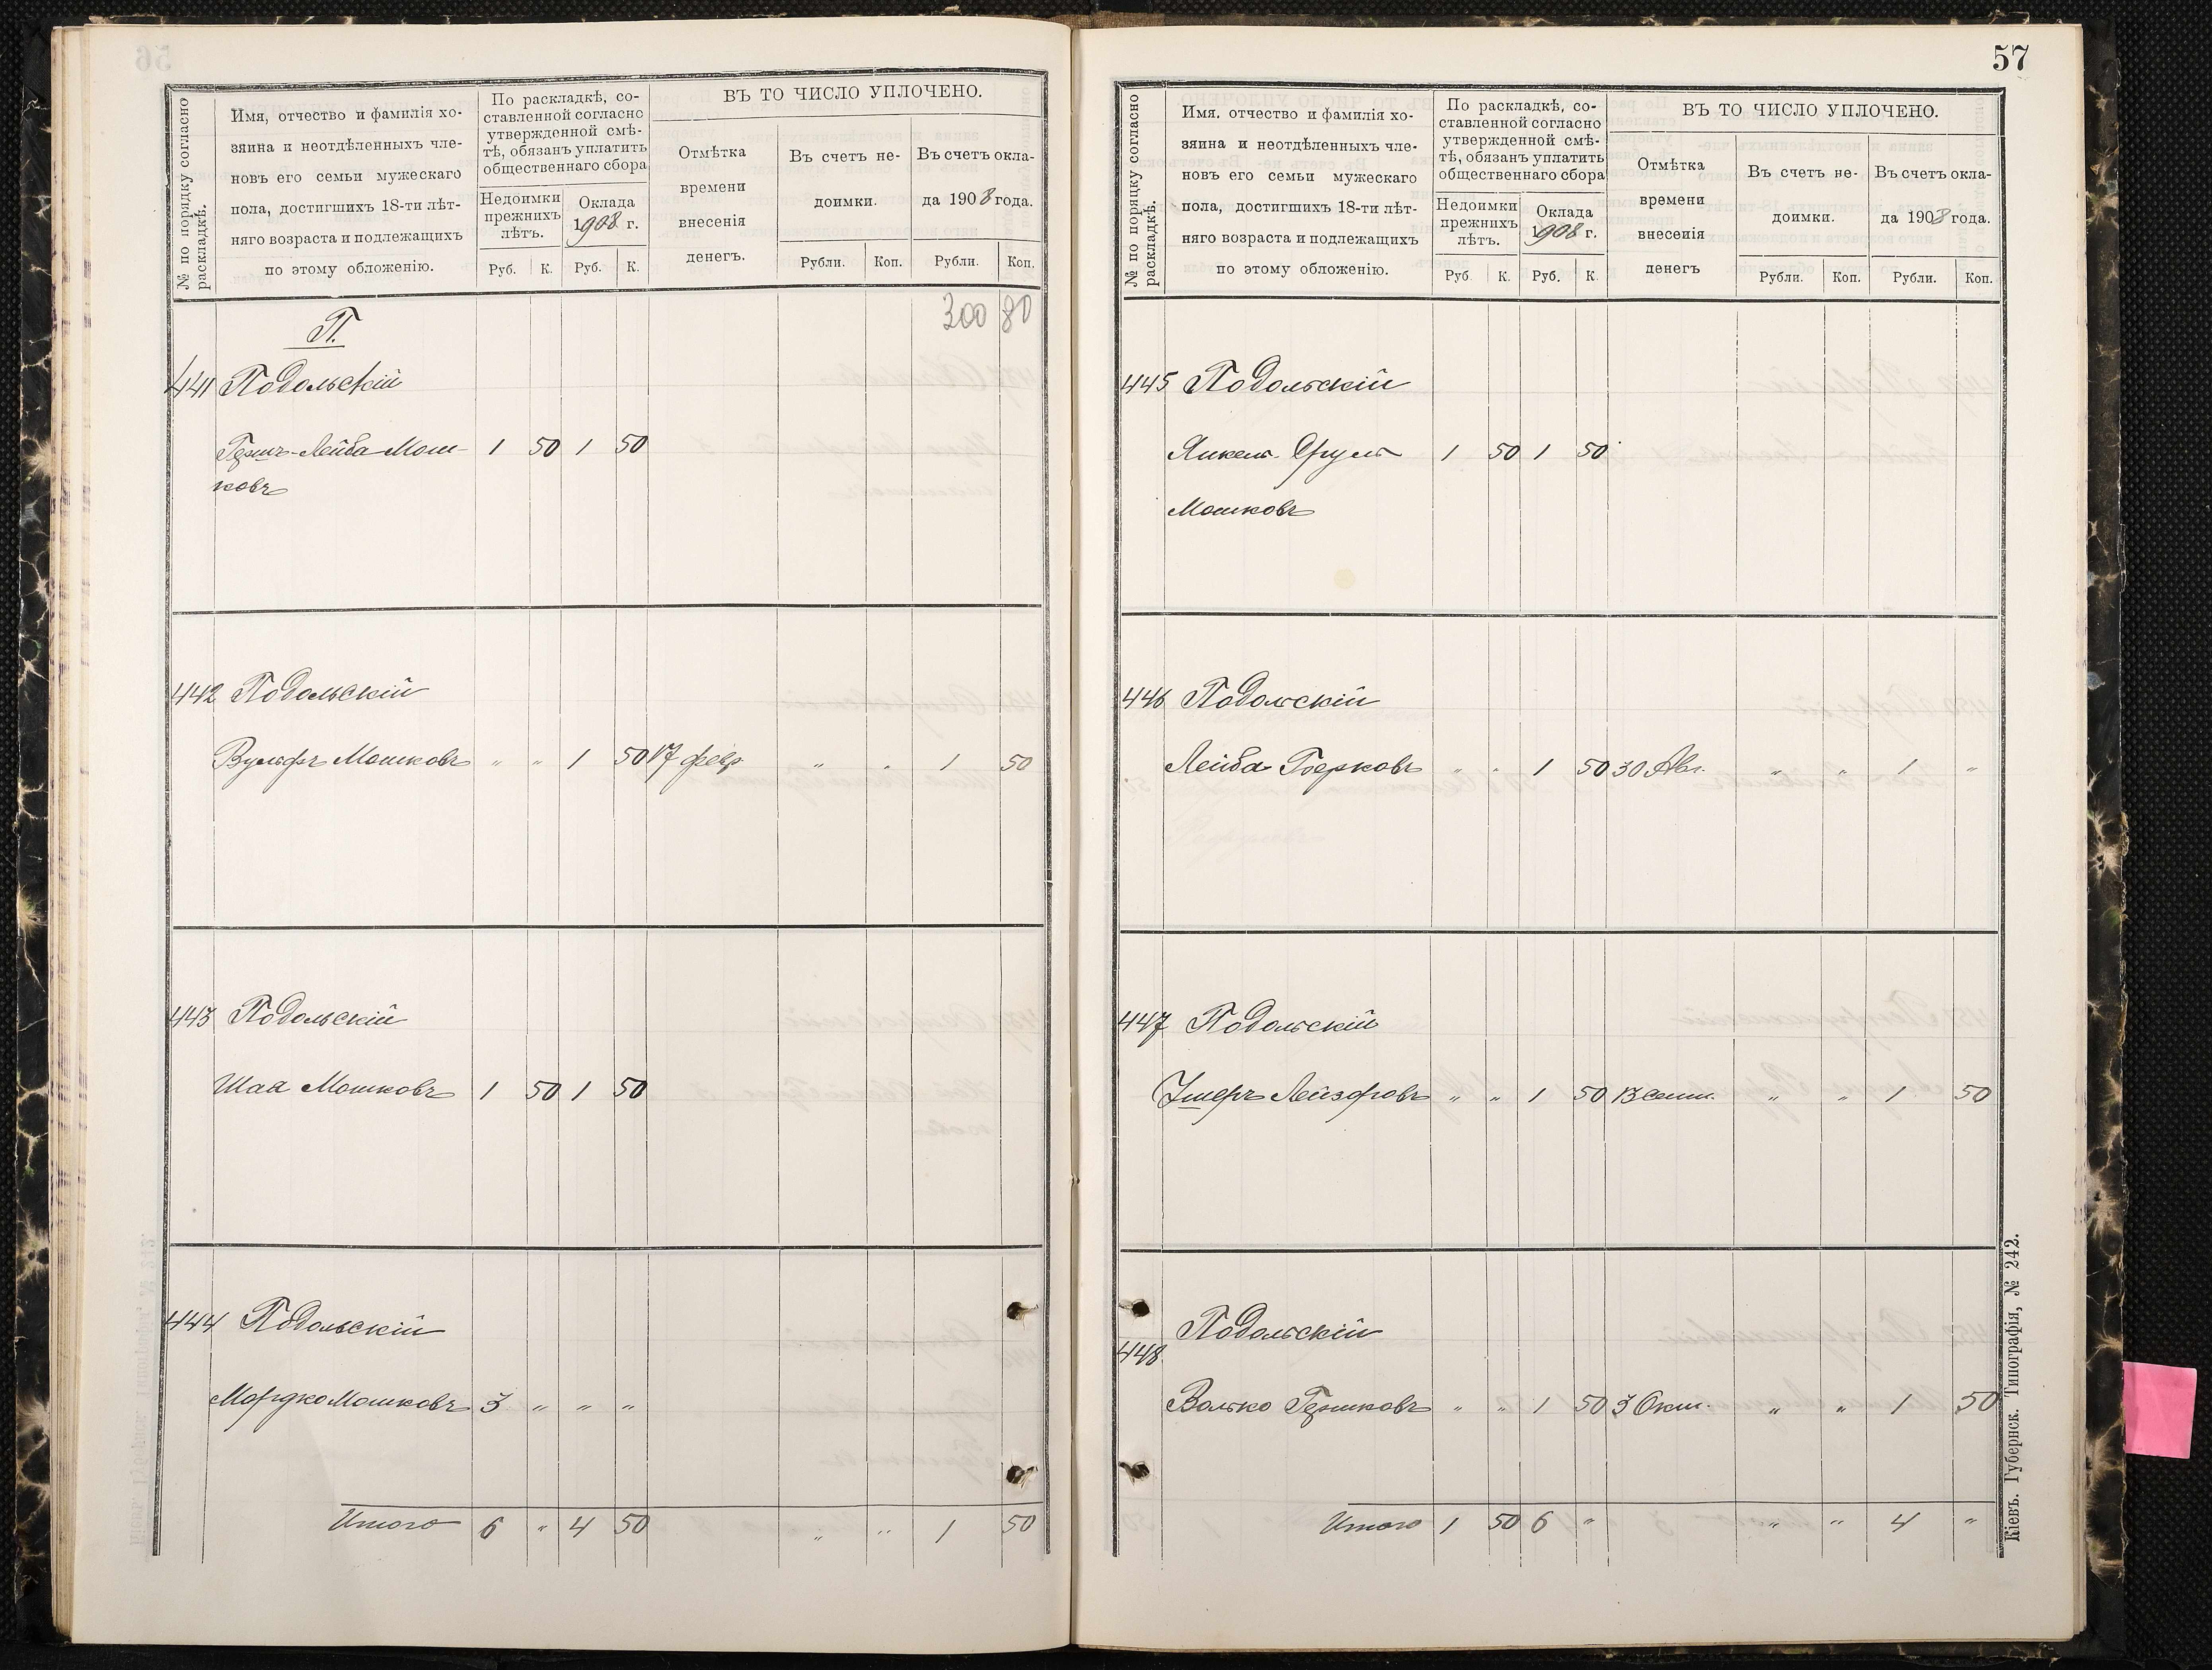 № по порядку согласно
раскладкѣ.
Имя, отчество и фамилія хо-
зяина и неотдѣленныхъ чле-
новъ его семьи мужескаго
пола, достигшихъ 18-ти лѣт-
няго возраста и подлежащихъ
по этому обложенію.
По раскладкѣ, со-
ставленной согласно
утвержденной смѣ-
тѣ, обязанъ уплатить
общественнаго сбора
Недоимки
прежнихъ
лѣтъ.
Оклада
1908 г.
Руб. К. Руб. К.
ВЪ ТО ЧИСЛО УПЛОЧЕНО.
Отмѣтка
времени
внесенія
денегъ.
Въ счетъ не-
доимки.
Рубли. Коп.
Въ счетъ окла-
да 1908 года.
Рубли. Коп.
П.
300 80
441 Подольскій
Гершъ-Лейба Мош- 1 50 1 50
ковъ
442 Подольскій
Вульфъ Мошковъ " " 1 50 17 февр. " " 1 50
443 Подольскій
Шая Мошковъ 1 50 1 50
444 Подольскій
Мордко Мошковъ 3 " " "
Итого 6 " 4 50 " " 1 50
57
№ по порядку согласно
раскладкѣ.
Имя, отчество и фамилія хо-
зяина и неотдѣленныхъ чле-
новъ его семьи мужескаго
пола, достигшихъ 18-ти лѣт-
няго возраста и подлежащихъ
по этому обложенію.
По раскладкѣ, со-
ставленной согласно
утвержденной смѣ-
тѣ, обязанъ уплатить
общественнаго сбора
Недоимки
прежнихъ
лѣтъ.
Оклада
1908 г.
Руб. К. Руб. К.
ВЪ ТО ЧИСЛО УПЛОЧЕНО.
Отмѣтка
времени
внесенія
денегъ
Въ счетъ не-
доимки.
Рубли. Коп.
Въ счетъ окла-
да 1908 года.
Рубли. Коп.
445 Подольскій
Янкель Сруль 1 50 1 50
Мошковъ
446 Подольскій
Лейба Берковъ " " 1 50 30 Авг. " " 1 "
447 Подольскій
Ушеръ Лейзоровъ " " 1 50 13 Сент. " " 1 50
448 Подольскій
Волько Гершковъ " " 1 50 3 Окт. " " 1 50
Итого 1 50 6 " " " 4 "
Кіевъ. Губернск. Типографія, № 242.